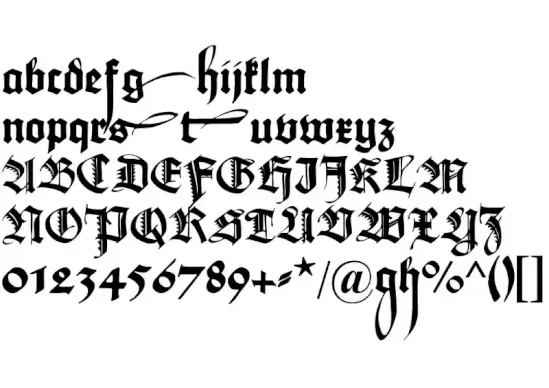 abcdefg hijklm
nopqrs t uvwxyz
ABCDEFGHIJKLM
NOPQRSTUVWXYZ
0123456789+=*/@gh%^()[]